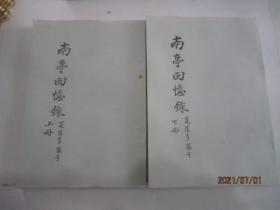 南亭回憶錄
上册
南亭回憶錄
下册
2021/07/01